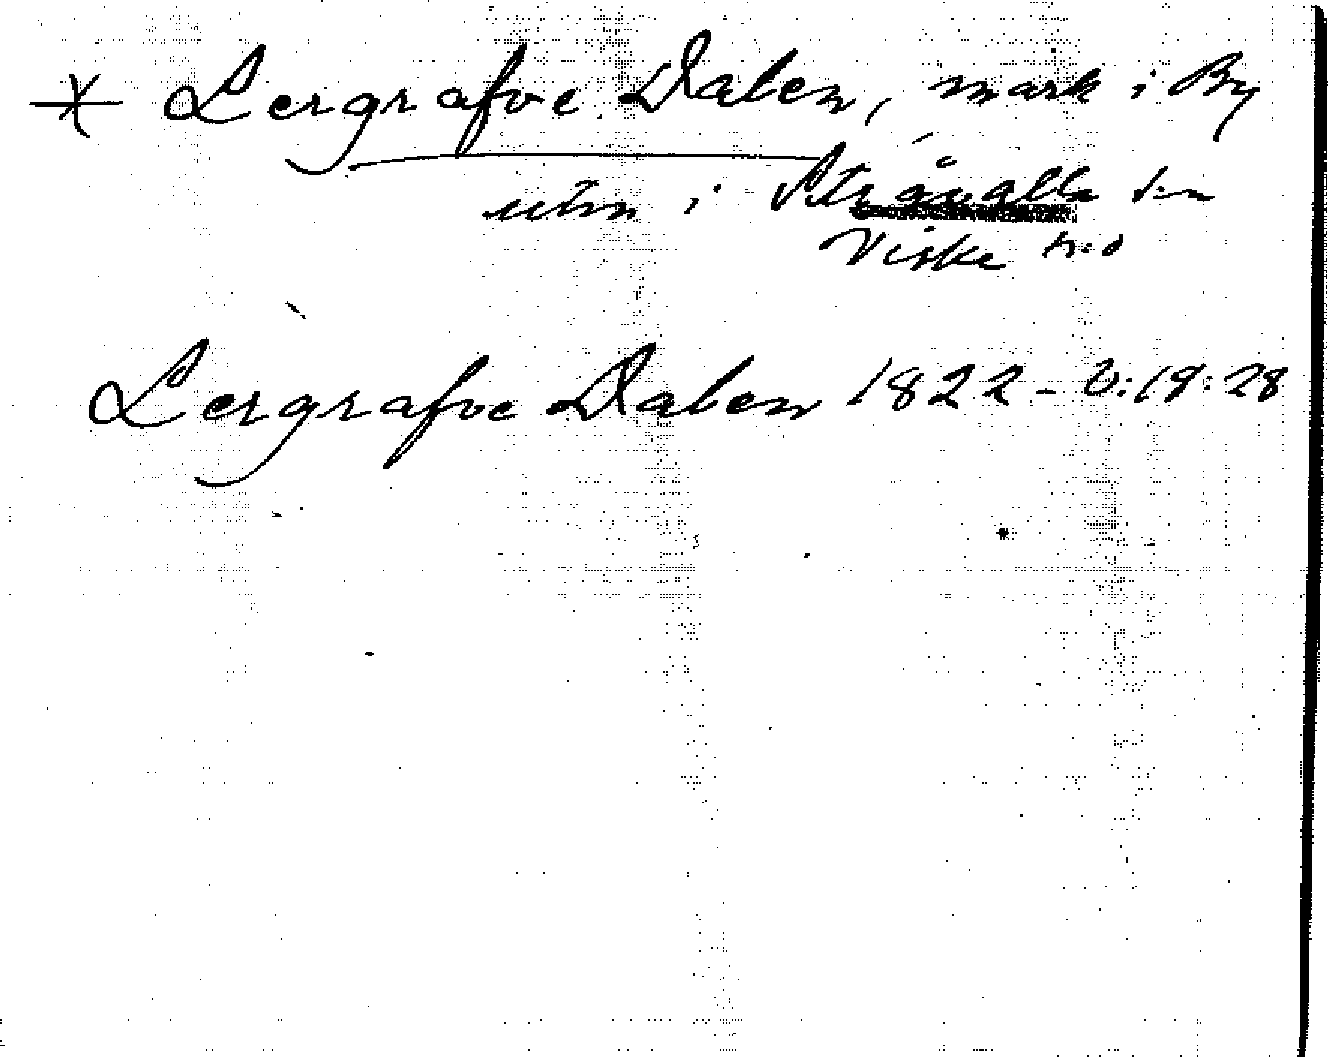 * Lergrafve Dalen, mark i By
utm i Stråvalla sn
Viske hd
Lergrafve Dalen 1822 - V:19:28